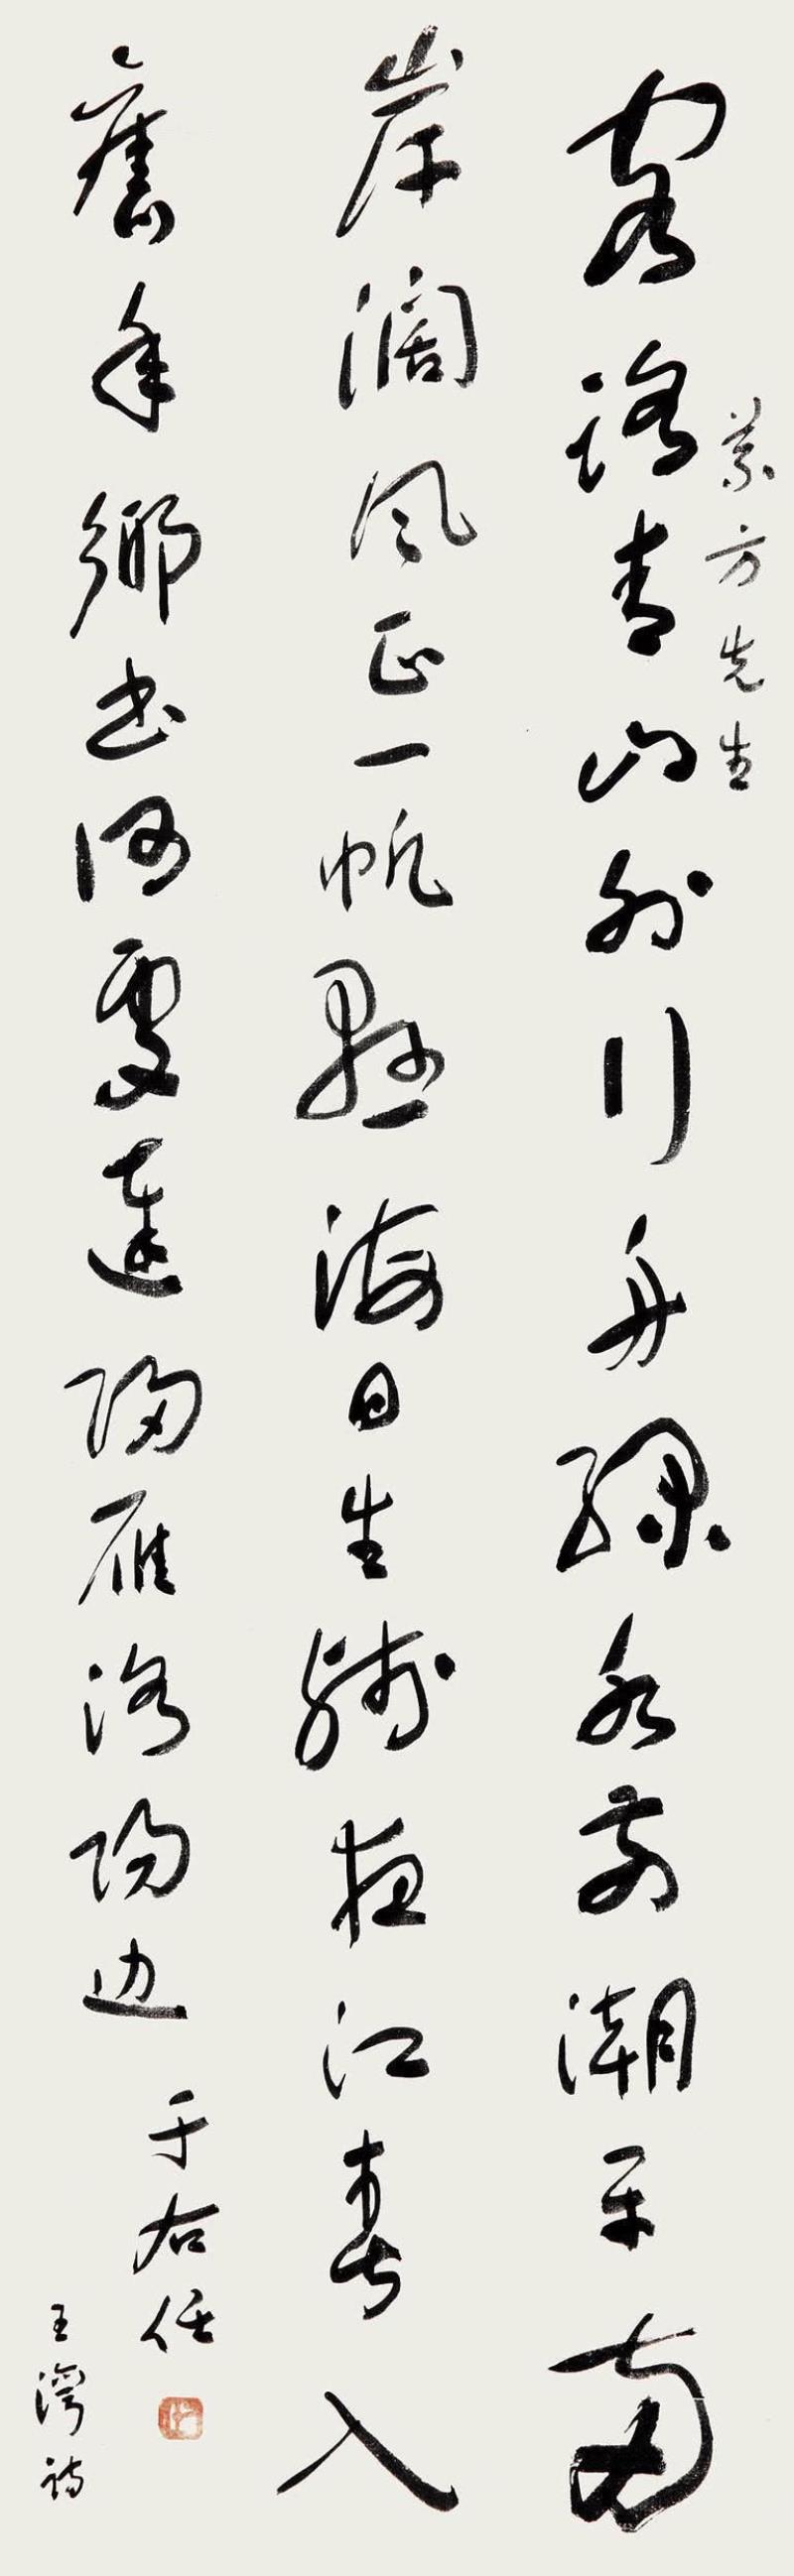 方先生
客路青山外行舟綠水前潮平兩
岸濶風正一帆懸海日生殘夜江春入
舊年鄉書何處達歸雁洛陽边
于右任
王灣詩